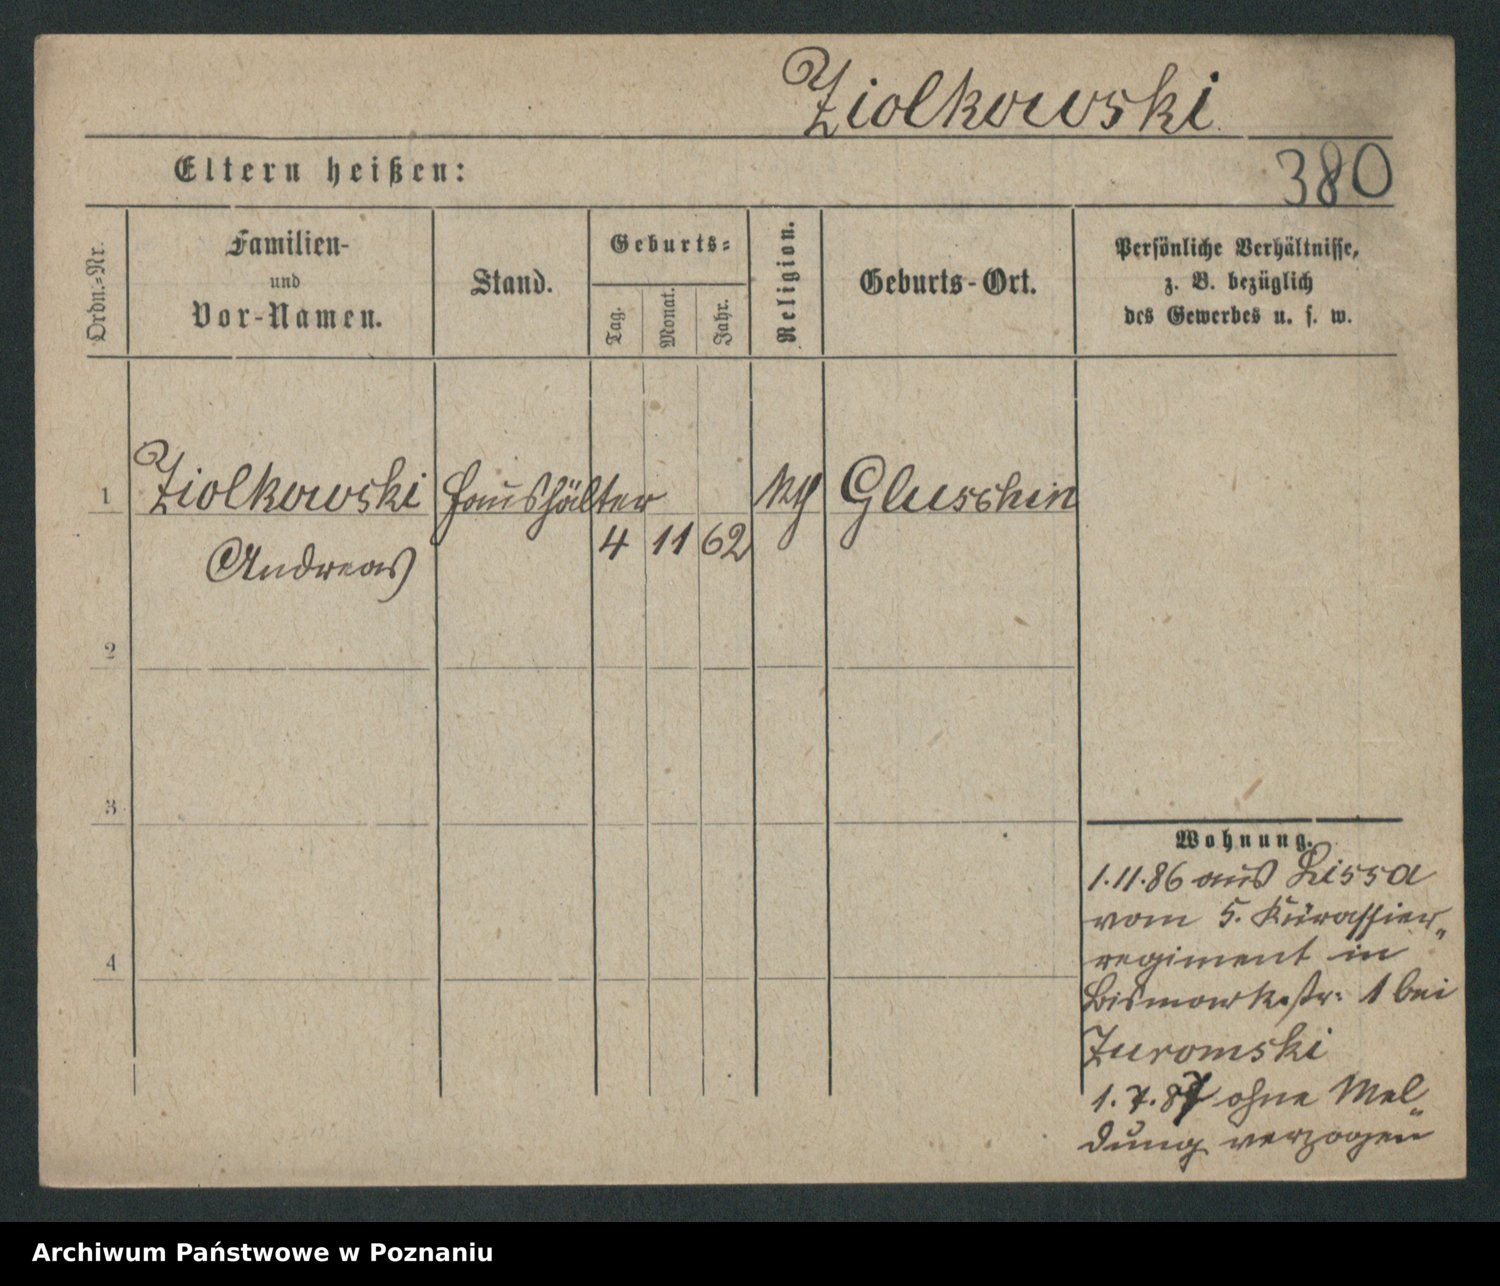 Ziolkowski
Eltern heißen:
380
Ordn.-Nr.
Familien-
und
Vor-Namen.
Stand.
Geburts-
Tag.
Monat.
Jahr.
Religion.
Geburts-Ort.
Persönliche Verhältnisse,
z. B. bezüglich
des Gewerbes u. s. w.
1 Ziolkowski Haushälter kth Glusschin
Andreas 4 11 62
2
3
4
Wohnung.
1.11.86 aus Lissa
vom 5. Kürassier„
regiment in
Bismarkstr: 1 bei
Zuromski
1.7.87 ohne Mel„
dung verzogen
Archiwum Państwowe w Poznaniu